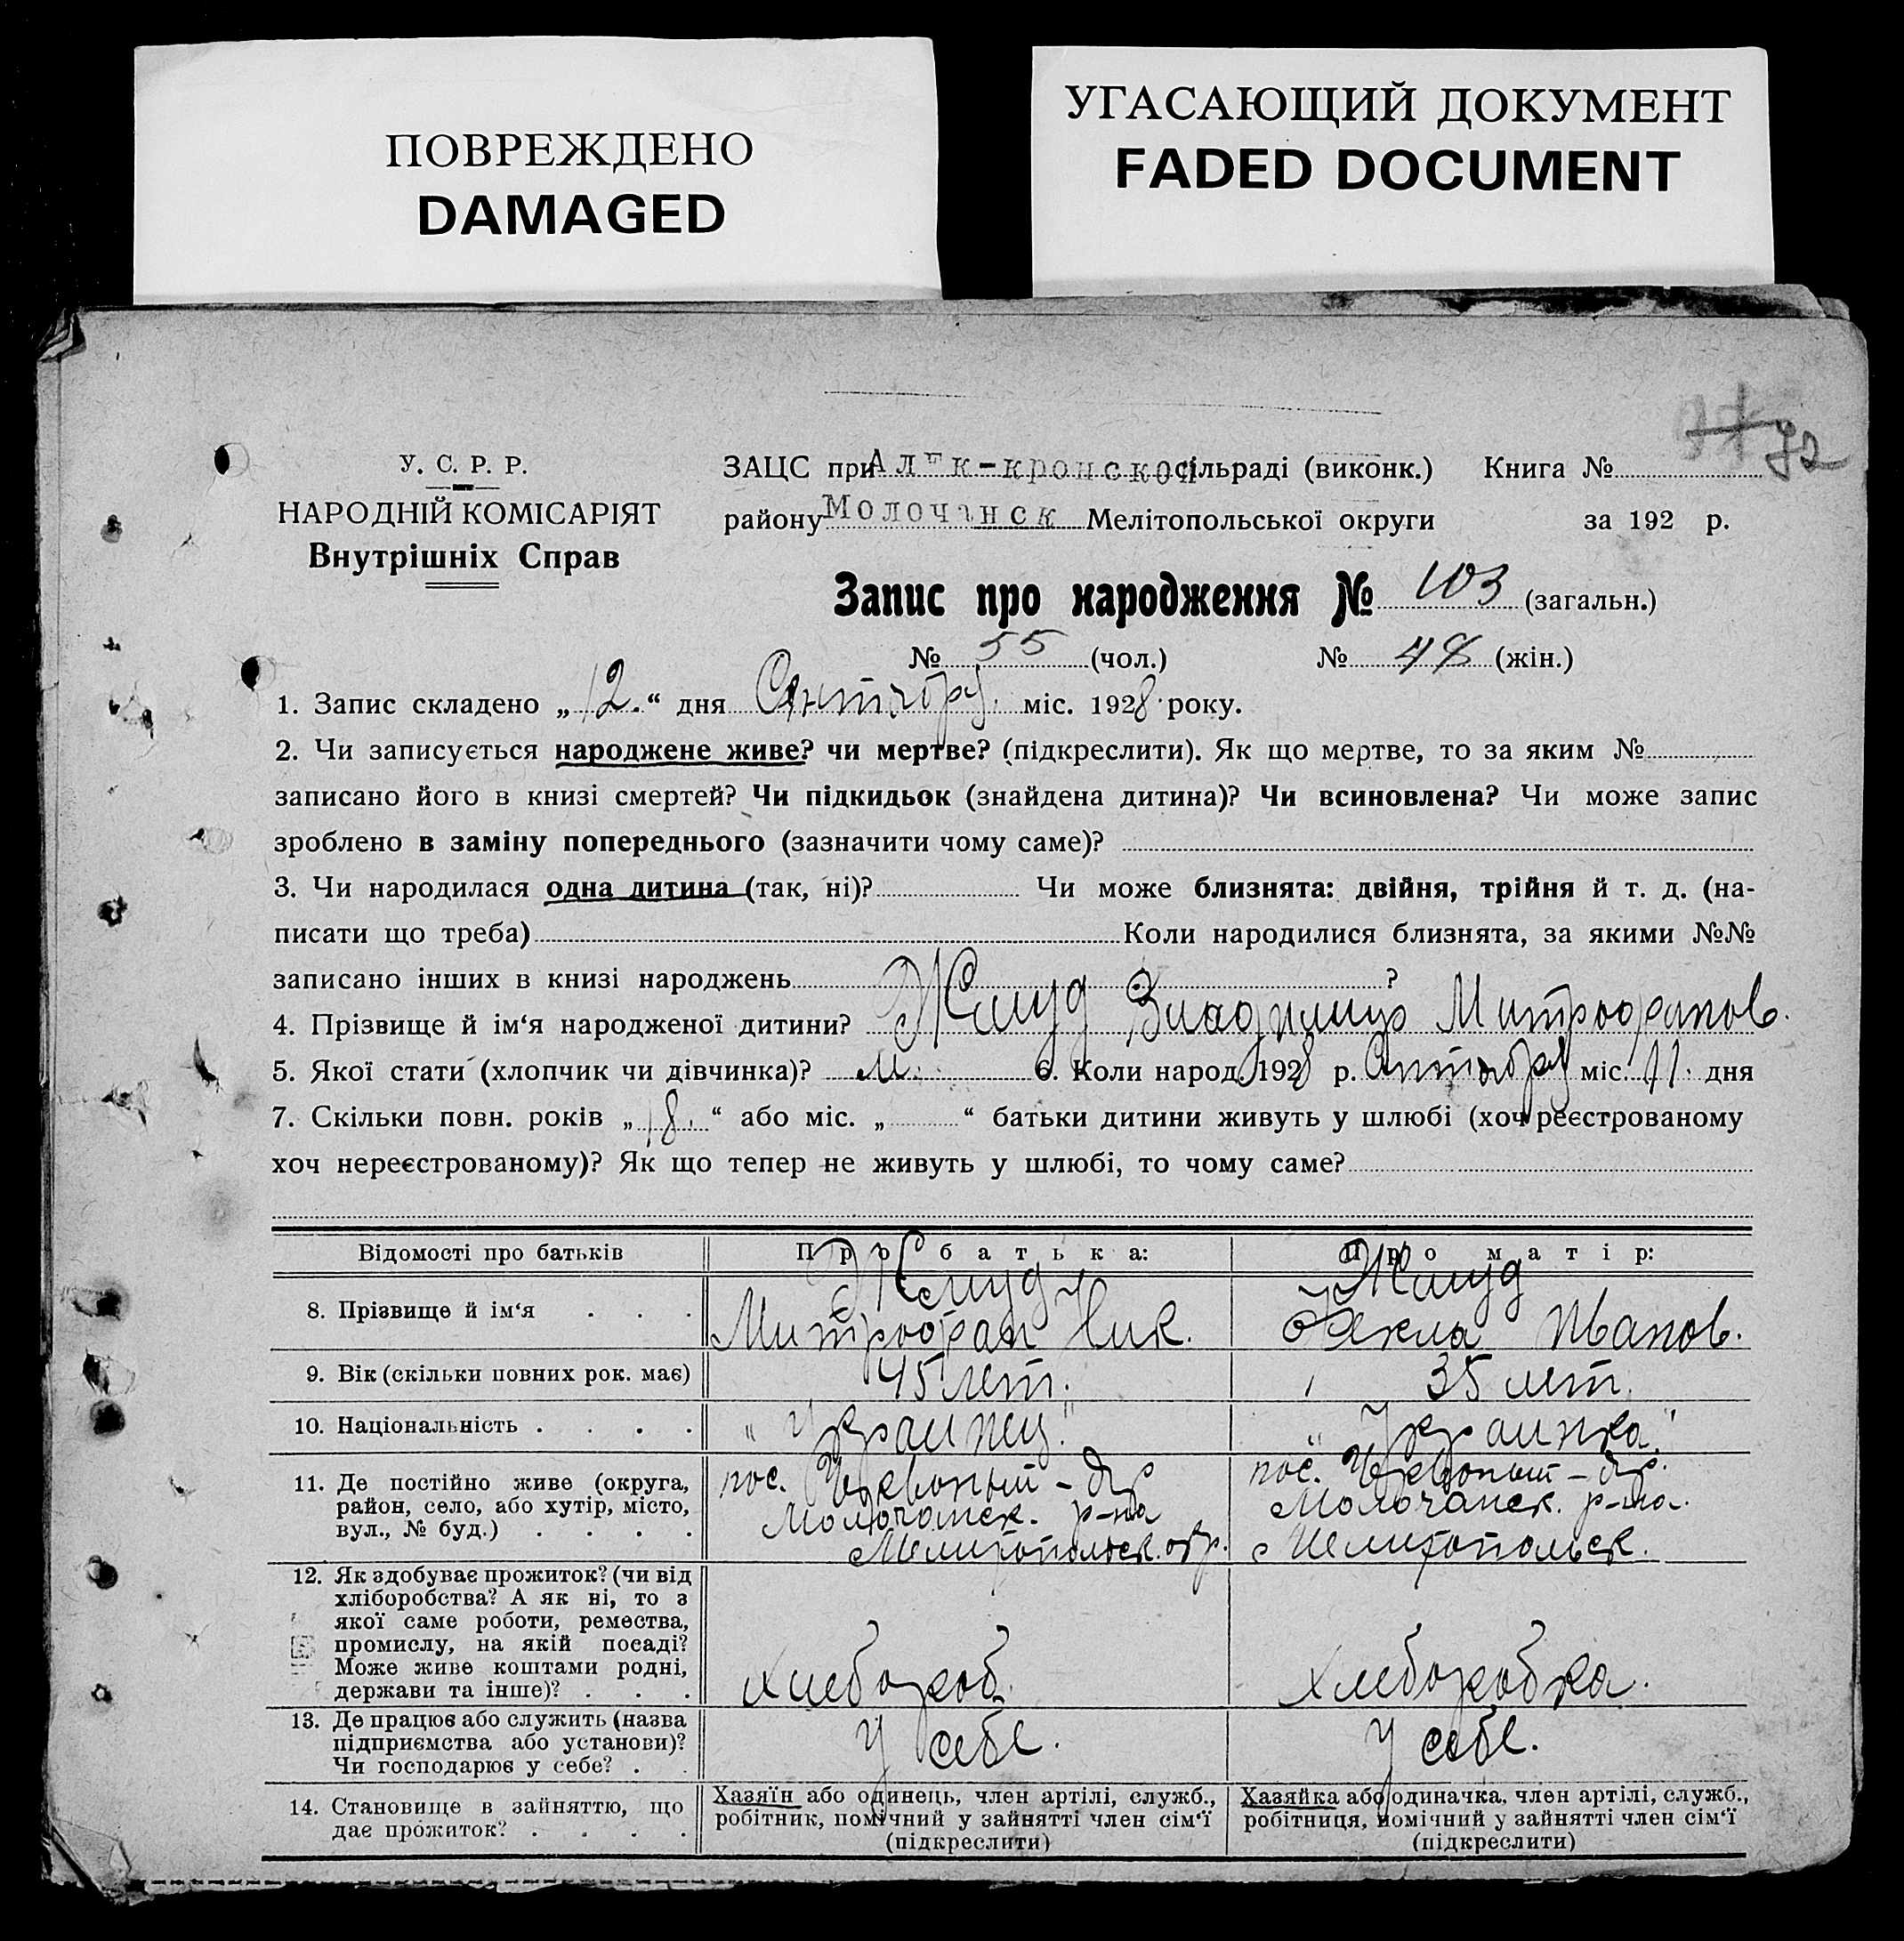 ПОВРЕЖДЕНО
DAMAGED
УГАСАЮЩИЙ ДОКУМЕНТ
FADED DOCUMENT
92
У. С. Р. Р.
НАРОДНІЙ КОМІСАРІЯТ
Внутрішніх Справ
ЗАЦС при Алек-кронской сільраді (виконк.) Книга №
району Молочанск Мелітопольської округи за 192 р.
Запис про народження № 103 (загальн.)
№ 55 (чол.) № 48 (жін.)
1. Запис складено „12.“ дня Сентября міс. 1928 року.
2. Чи записується народжене живе? чи мертве? (підкреслити). Як що мертве, то за яким №
записано його в книзі смертей? Чи підкидьок (знайдена дитина)? Чи всиновлена? Чи може запис
зроблено в заміну попереднього (зазначити чому саме)?
3. Чи народилася одна дитина (так, ні)? Чи може близнята: двійня, трійня й т. д. (на-
писати що треба) Коли народилися близнята, за якими №№
записано інших в книзі народжень ?
4. Прізвище й ім‘я народженої дитини? Жмуд Владимир Митрофанов.
5. Якої стати (хлопчик чи дівчинка)? М. 6. Коли народ. 1928 р. Сентября міс. 11. дня
7. Скільки повн. років „18.“ або міс. „ “ батьки дитини живуть у шлюбі (хоч реєстрованому
хоч нереєстрованому)? Як що тепер не живуть у шлюбі, то чому саме?
Відомості про батьків
Про батька:
Про матір:
8. Прізвище й ім‘я . . .
Жмуд
Митрофан Ник.
Жмуд
Фекла Иванов.
9. Вік (скільки повних рок. має)
45 лет.
35 лет.
10. Національність . . . .
„Украинец.“
„Украинка.“
11. Де постійно живе (округа,
район, село, або хутір, місто,
вул., № буд.) . . . .
пос. Червоный-
Молочанск. р-на
Мелитопольск. окр.
пос. Червоный-
Молочанск. р-на.
Мелитопольск.
12. Як здобуває прожиток? (чи від
хліборобства? А як ні, то з
якої саме роботи, ремества,
промислу, на якій посаді?
Може живе коштами родні,
держави та інше)? . . .
Хлебороб.
Хлеборобка.
13. Де працює або служить (назва
підприємства або установи)?
Чи господарює у себе? . .
У себе.
У себе.
14. Становище в зайняттю, що
дає прожиток? . . . .
Хазяїн або одинець, член артілі, служб.,
робітник, помічний у зайнятті член сім‘ї
(підкреслити)
Хазяйка або одиначка, член артілі, служб.,
робітниця, помічний у зайнятті член сім‘ї
(підкреслити)